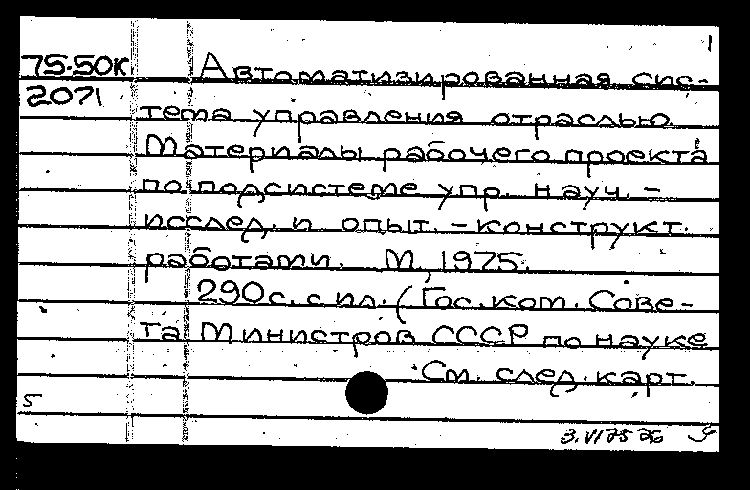 1
75-50к Автоматизированная сис-
2071 тема управления отраслью.
Материалы рабочего проекта
по подсистеме упр. науч.-
исслед. и опыт.-конструкт.
работами. М., 1975.
290с. с ил. (Гос. ком. Сове-
та Министров СССР по науке
См. след. карт.
5